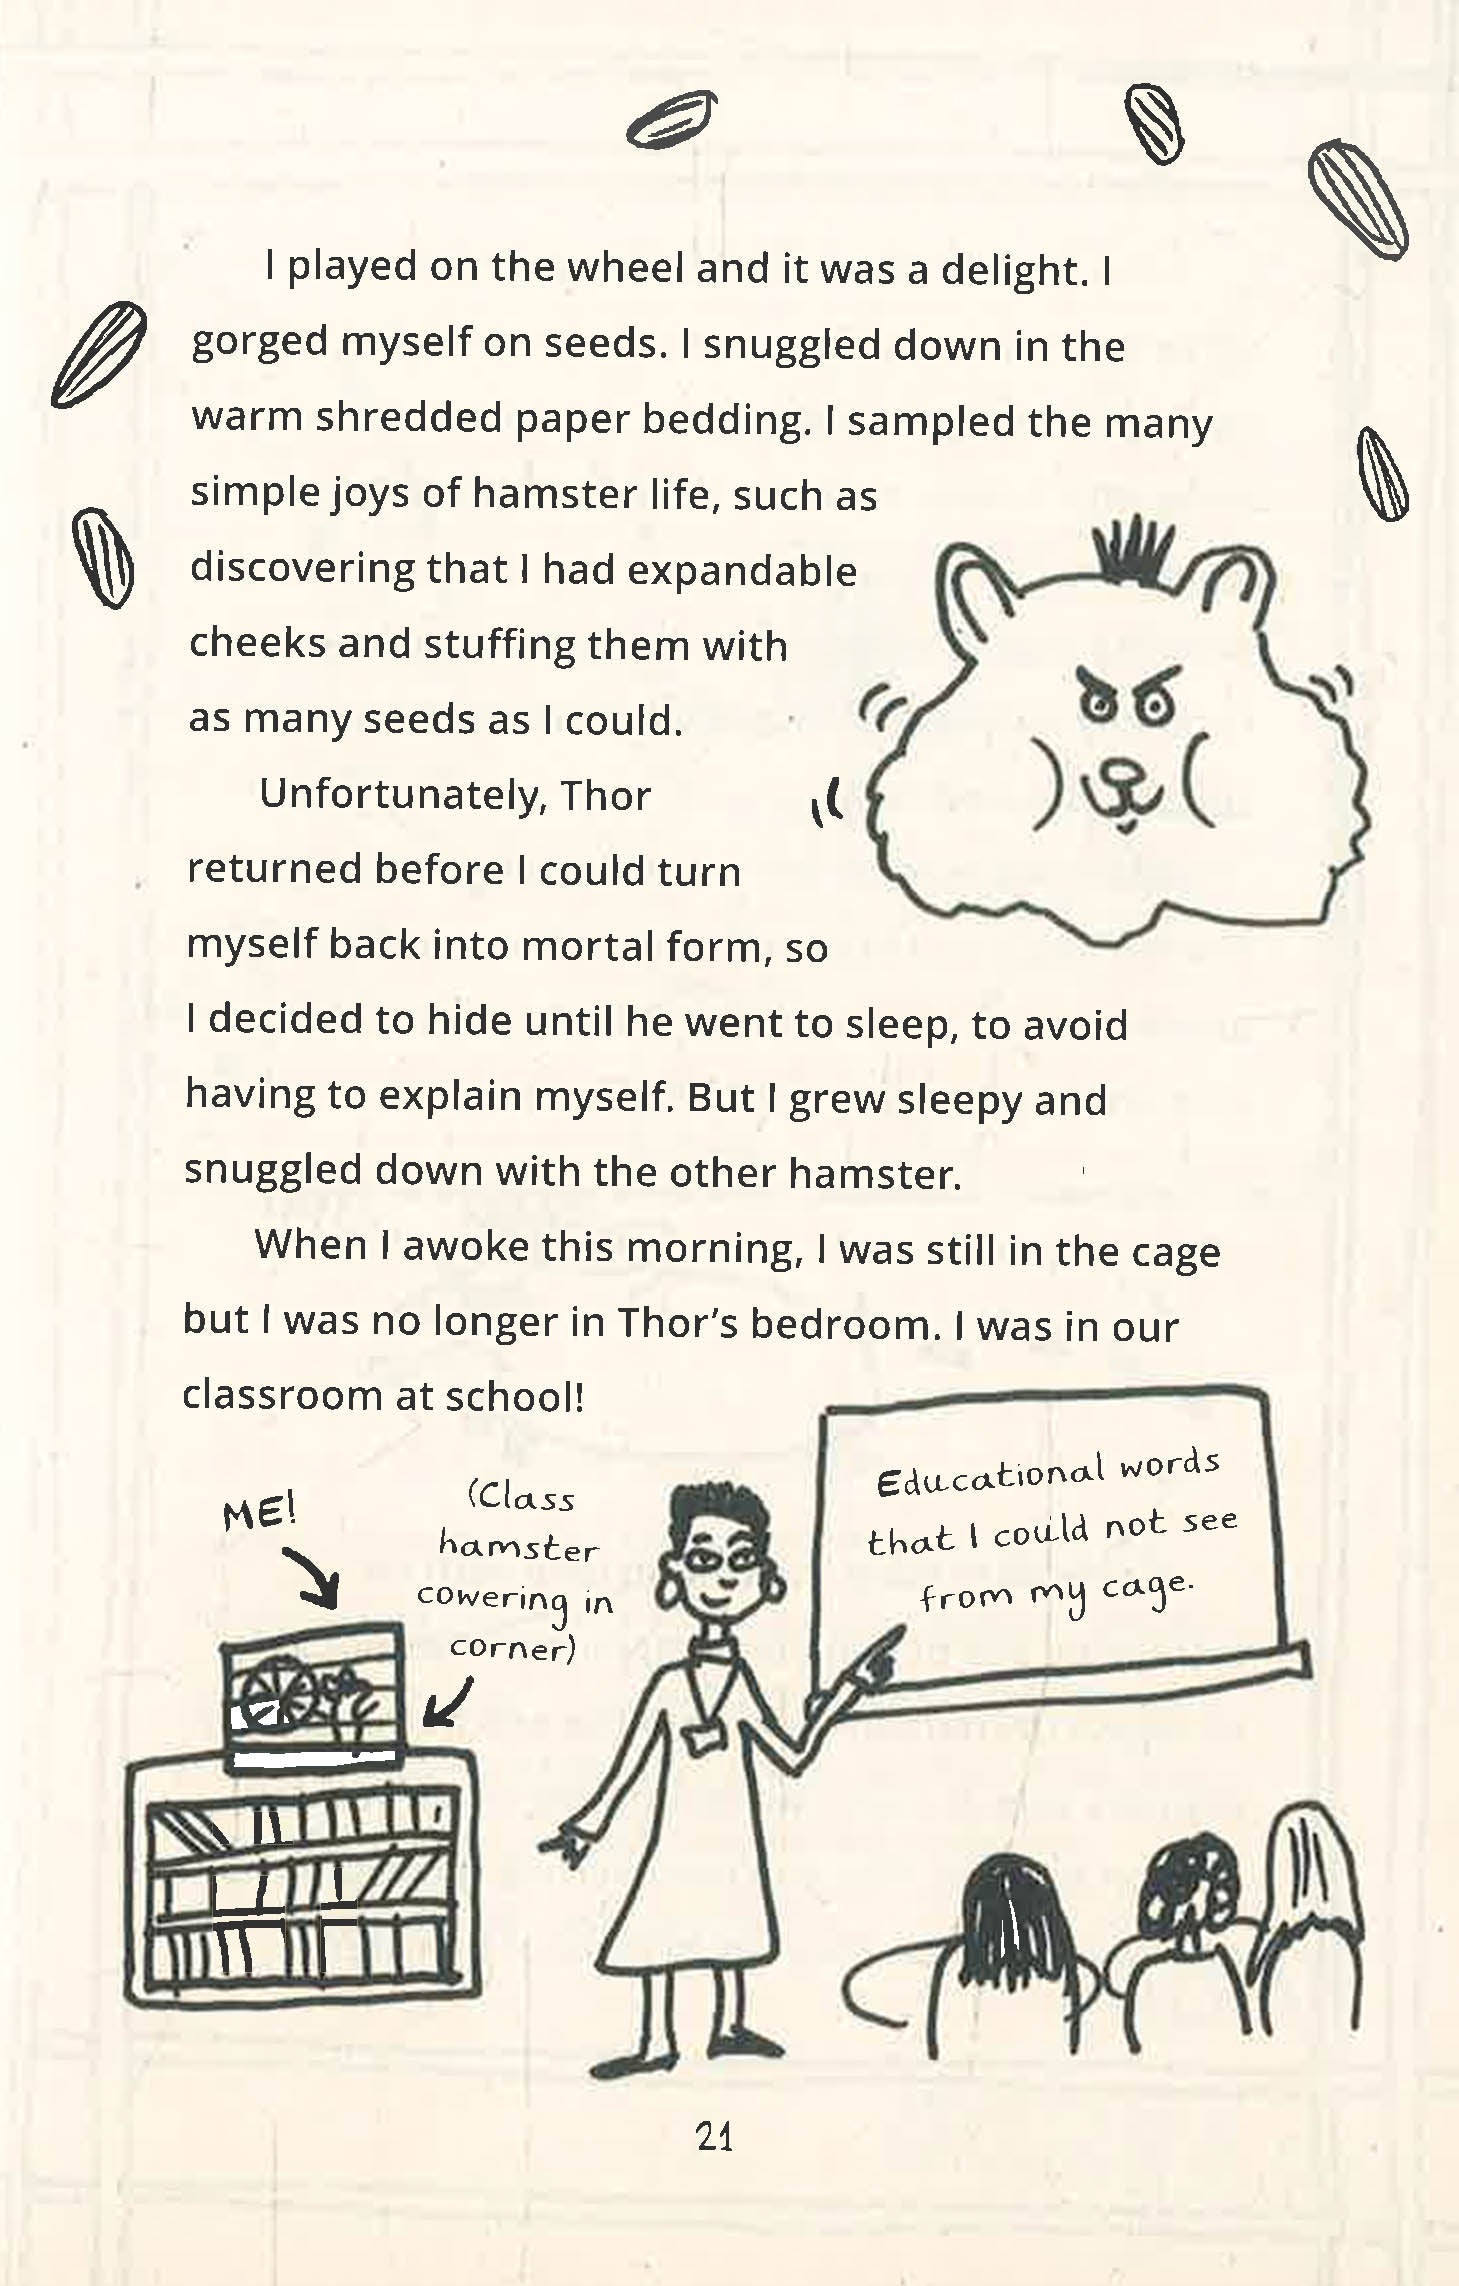 I played on the wheel and it was a delight. I
gorged myself on seeds. I snuggled down in the
warm shredded paper bedding. I sampled the many
simple joys of hamster life, such as
discovering that I had expandable
cheeks and stuffing them with
as many seeds as I could.
Unfortunately, Thor
returned before I could turn
myself back into mortal form, so
I decided to hide until he went to sleep, to avoid
having to explain myself. But I grew sleepy and
snuggled down with the other hamster.
When I awoke this morning, I was still in the cage
but I was no longer in Thor's bedroom. I was in our
classroom at school!
ME!
(Class
hamster
cowering in
corner)
Educational words
that I could not see
from my cage.
21